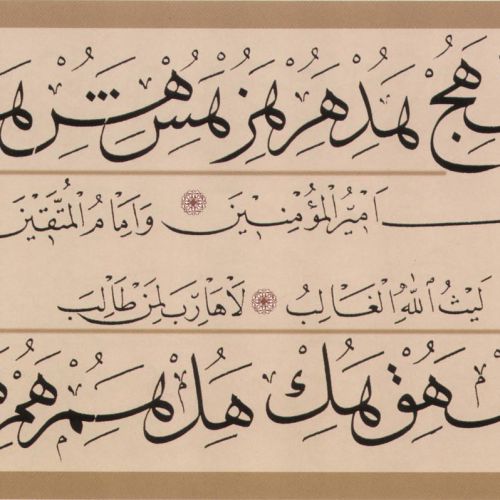 هج هد هر هز هس هش
اَمِيرُ الْمُؤْمِنِينَ وَاِمَامُ الْمُتَّقِينَ
لَيْثُ اللّٰهِ الْغَالِبُ لَاهَارِبَ لِمَنْ طَالِبَ
هق هك هل هم هم